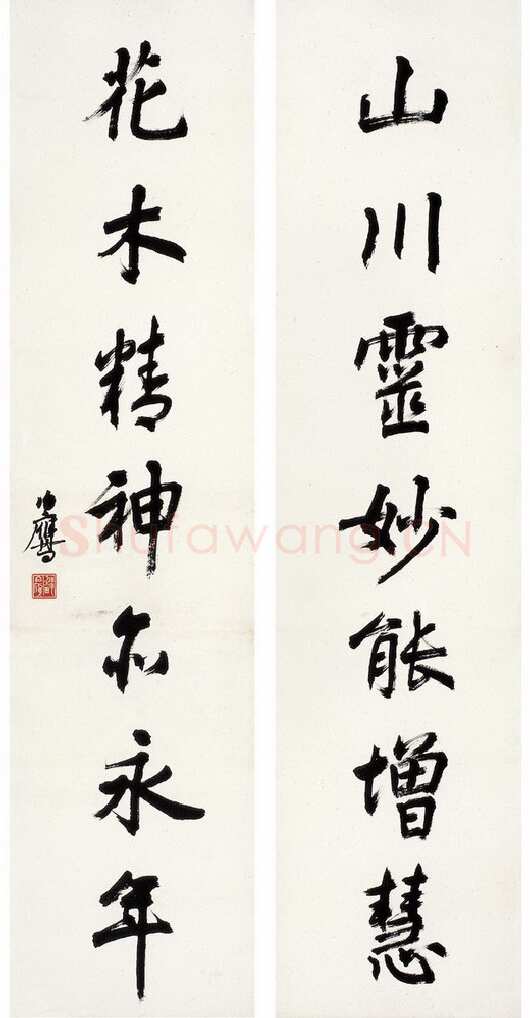 山川靈妙能增慧
花木精神亦永年
少鹰
Shufawang.CN